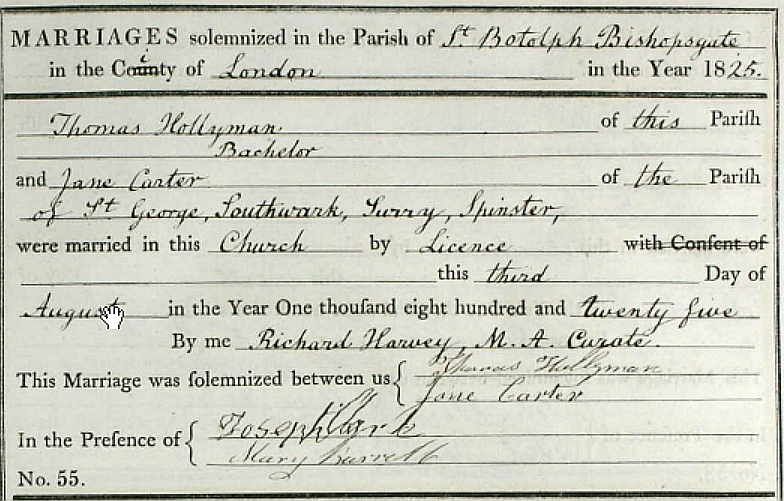 MARRIAGES solemnized in the Parish of St. Botolph Bishopsgate
in the County of London in the Year 1825.
Thomas Hollyman of this Pariſh
Bachelor
and Jane Carter of the Pariſh
of St George, Southwark, Surry, Spinster,
were married in this Church by Licence with Conſent of
this third Day of
August in the Year One thouſand eight hundred and twenty five
By me Richard Harvey, M. A. Curate.
This Marriage was ſolemnized between us { Thomas Hollyman
Jane Carter
In the Preſence of { Joseph Clark
Mary
No. 55.